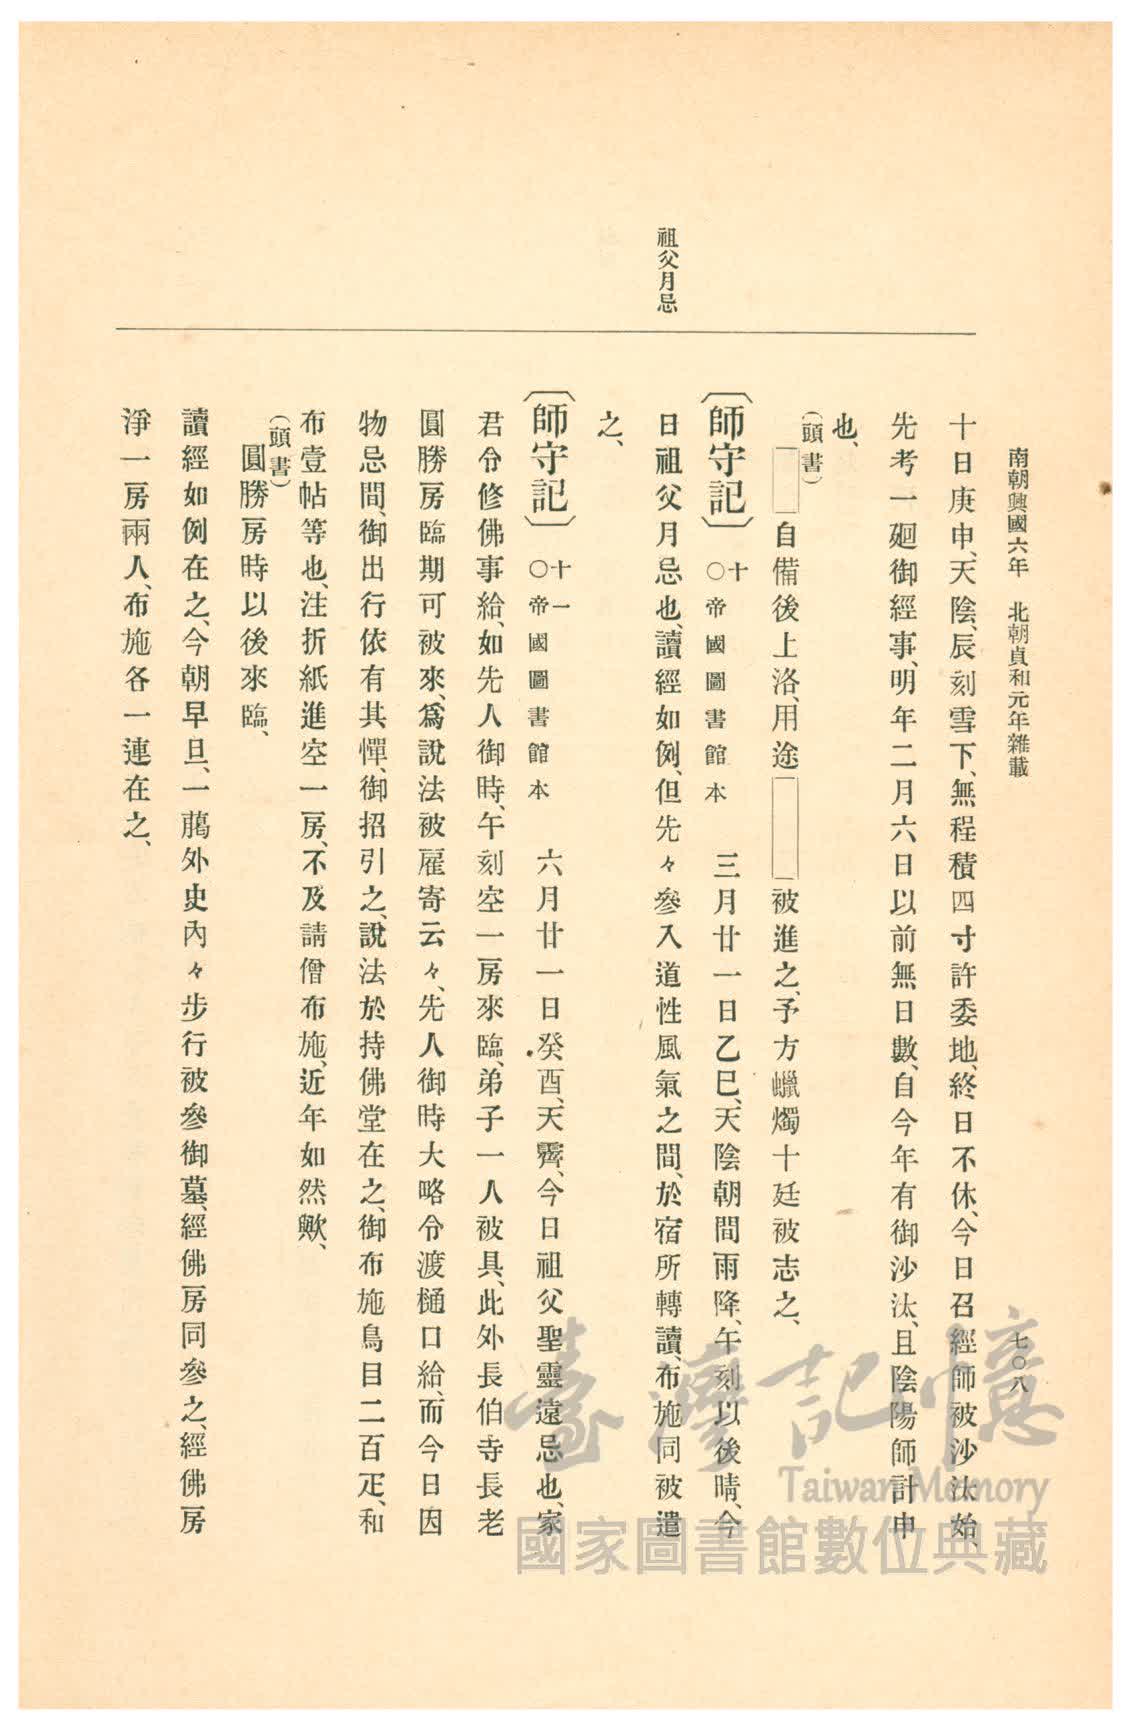 南朝興國六年　北朝貞和元年雜載
七〇八
十日庚申、天陰、辰刻雪下、無程積四寸許委地、終日不休、今日召經師被沙汰始、
先考一廻御經事、明年二月六日以前無日數、自今年有御沙汰、且陰陽師計申
也、
（頭書）
自備後上洛、用途　被進之、予方蠟燭十廷被志之、
祖父月忌
〔師守記〕十〇帝國圖書館本　三月廿一日乙巳、天陰朝間雨降、午刻以後晴、今
日祖父月忌也、讀經如例、但先々參入道性風氣之間、於宿所轉讀、布施同被遣
之、
〔師守記〕十一〇帝國圖書館本　六月廿一日癸酉、天霽、今日祖父聖靈遠忌也、家
君令修佛事給、如先人御時、午刻空一房來臨、弟子一人被具、此外長伯寺長老
圓勝房臨期可被來、爲說法被雇寄云々、先人御時大略令渡樋口給、而今日因
物忌間、御出行依有其憚、御招引之、說法於持佛堂在之、御布施鳥目二百疋、和
布壹帖等也、注折紙進空一房、不及請僧布施、近年如然歟、
（頭書）
圓勝房時以後來臨、
讀經如例在之、今朝早旦、一﨟外史內々步行被參御墓、經佛房同參之、經佛房
淨一房兩人、布施各一連在之、
臺灣記憶
Taiwan Memory
國家圖書館數位典藏